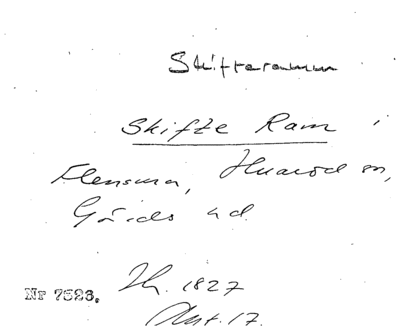 Skifteramm
Skifte Ram i
Flensma, Huaröd sn,
Gärds hd.
Nr 7523.
Th. 1827
Akt. 17.